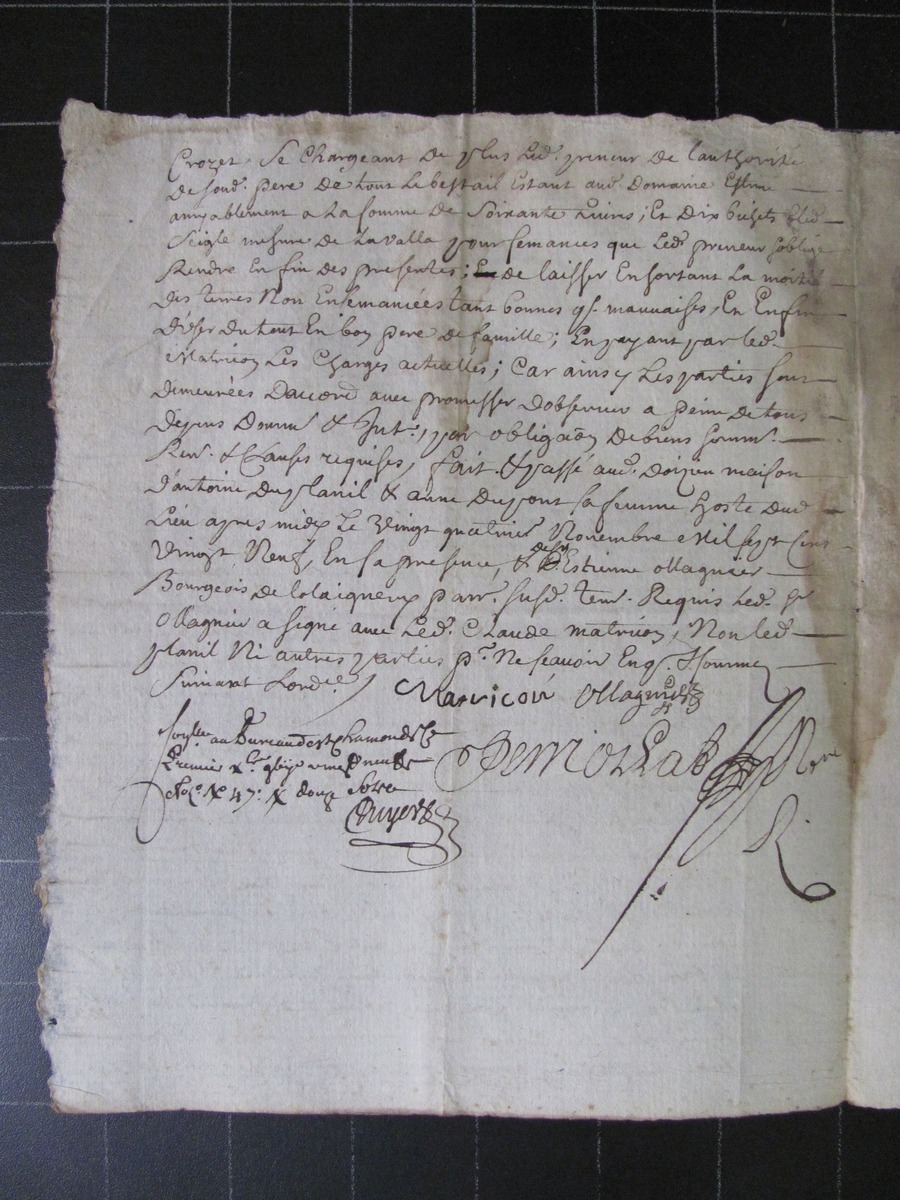 Crozet, Se Chargeant De plus Led. preneur De lauthorité
De sond. pere De tout Le bestail Estant aud. Domaine Estimé
amyablement a La somme De Soixante Livres; Et Dix bichets bled
Seigle mesure De Lavalla pour semances que Led. preneur soblige
Rendre En fin Des presentes; de laisser En sortant La moitié
Des terres Non Ensemancées tant bonnes q. mauvaises, Et Enfin
D'user Du tout En bon pere De famille; En payant par led.
Matricon Les Charges actuelles; Car ainsy Les parties sont
Demeurées Daccord avec promesses Dobserver a peine De tous
Depens Domm. & Int., par obligaon De biens soumn.
Ren. & Clauses requises, fait & passé aud. Doizieu maison
D'antoine Duplanil & anne Dupont sa femme hoste Dud.
Lieu apres midy Le Vingt quatrie Novembre Mil sept Cent
Vingt Neuf, En sa presence, & de sr Estienne Ollagnier
Bourgeois de parr. susd. tem. Requis Led. sr
Ollagnier a signé avec Led. Claude matricon, Non led.
planil Ni autres parties pr. Ne scavoir Enq. & somme
Suivant Lord.ce
Matricon Ollagnier
au Bureau de st Chamond Le
premier xbre vingt neuf
fol. 47. douze sols